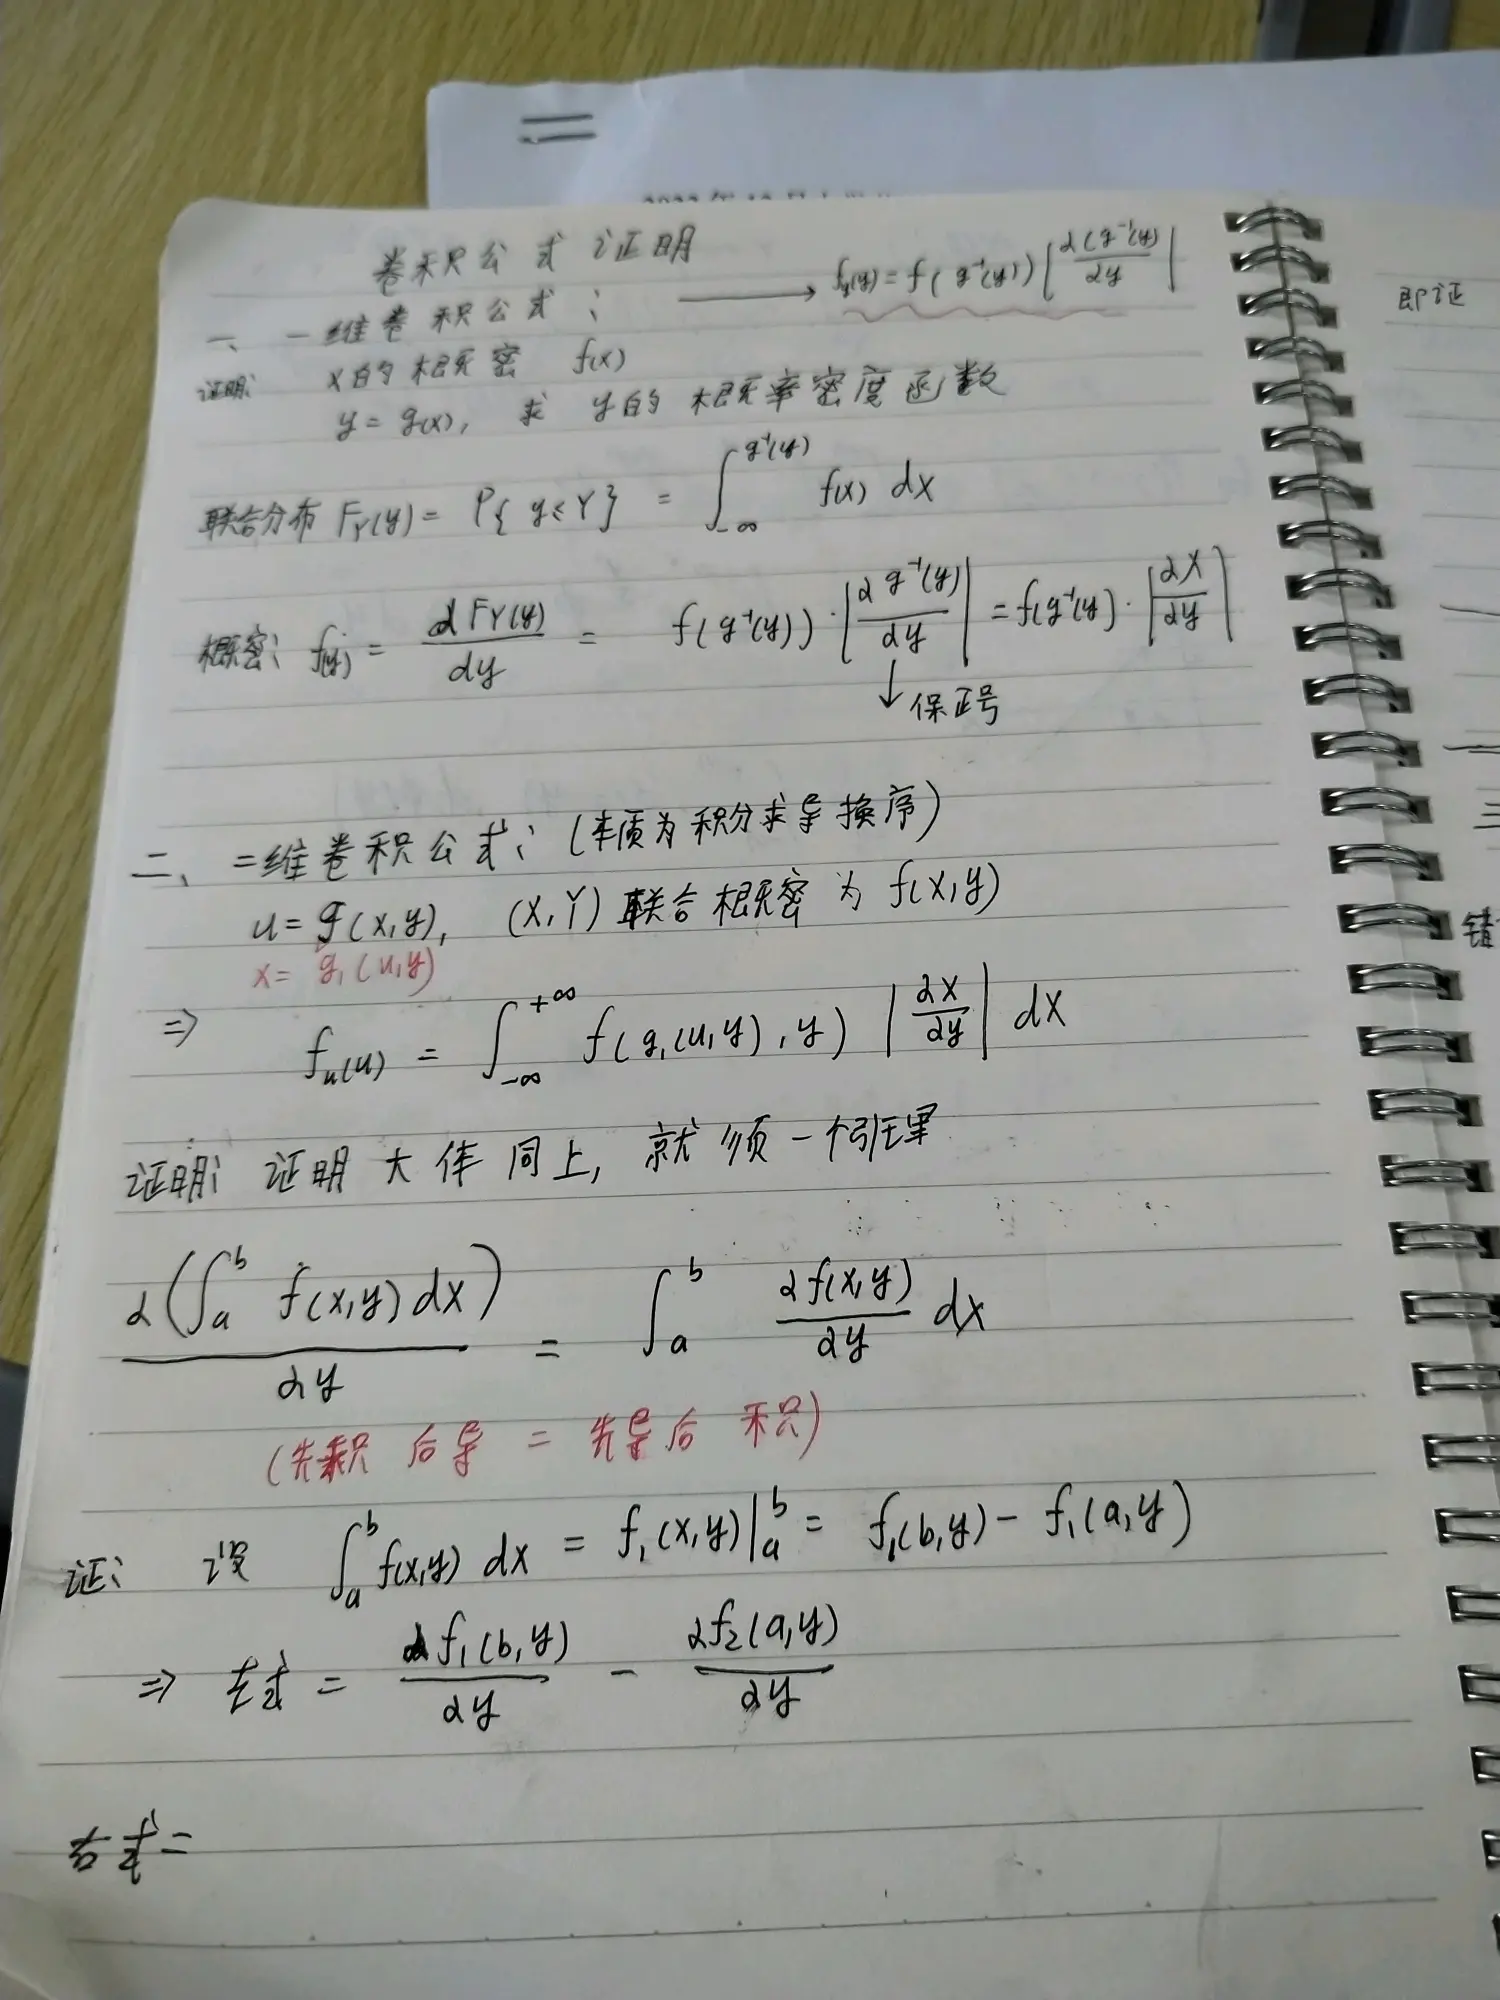 卷积公式证明
一、一维卷积公式: → fy(y)=f(g⁻¹(y))|d(g⁻¹(y))/dy|
证明: X的概密 f(x)
y=g(x), 求 y的概率密度函数
联合分布 F_Y(y) = P{y≤Y} = ∫_{-∞}^{g⁻¹(y)} f(x) dx
概密: f(y) = dF_Y(y)/dy = f(g⁻¹(y))·|d g⁻¹(y)/dy| = f(g⁻¹(y)·|dX/dy|
↓保正号
二、二维卷积公式: (本质为积分求导换序)
u=g(x,y), (X,Y)联合概密为 f(x,y)
x=g₁(u,y)
⇒ f_u(u) = ∫_{-∞}^{+∞} f(g₁(u,y),y) |∂x/∂y| dx
证明: 证明大体同上, 就须一个引理
∂(∫_a^b f(x,y)dx)/∂y = ∫_a^b ∂f(x,y)/∂y dx
(先积后导 = 先导后积)
证: 设 ∫_a^b f(x,y) dx = f₁(x,y)|_a^b = f₁(b,y) - f₁(a,y)
⇒ 左式 = ∂f₁(b,y)/∂y - ∂f₂(a,y)/∂y
右式=
即证
三
错